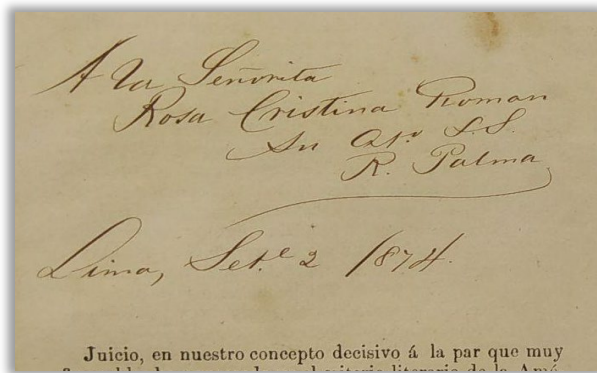 A la Señorita
Rosa Cristina Roman
Su Afo S.S.
R. Palma
Lima, Set.e 2 1874.
Juicio, en nuestro concepto decisivo á la par que muy
literario de la Amé-